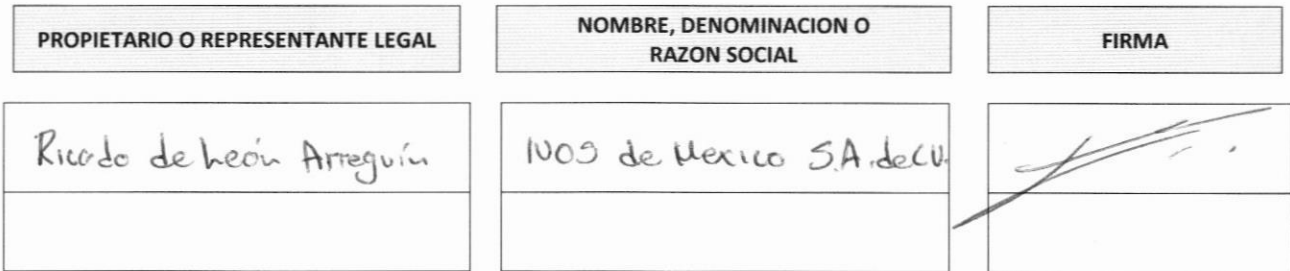 PROPIETARIO O REPRESENTANTE LEGAL
NOMBRE, DENOMINACION O
RAZON SOCIAL
FIRMA
Ricardo de León Arreguín
de Mexico S.A. de C.V.